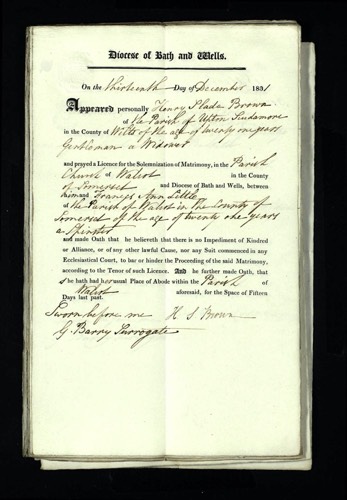 Diocese of Bath and Wells.
On the thirteenth Day of December 1831
Appeared personally Henry Slade Brown
of the Parish of Upton Scudamore
in the County of Wilts of the age of twenty one years
Gentleman a Widower
and prayed a Licence for the Solemnization of Matrimony, in the Parish
Church of Walcot in the County
of Somerset and Diocese of Bath and Wells, between
him and Frances Ann Little
of the Parish of Walcot in the County of
Somerset of the age of twenty one years
a Spinster
and made Oath that he believeth that there is no Impediment of Kindred
or Alliance, or of any other lawful Cause, nor any Suit commenced in any
Ecclesiastical Court, to bar or hinder the Proceeding of the said Matrimony,
according to the Tenor of such Licence. And he further made Oath, that
She hath had her usual Place of Abode within the Parish of
Walcot aforesaid, for the Space of Fifteen
Days last past.
Sworn before me H S Brown
G. Barry Surrogate